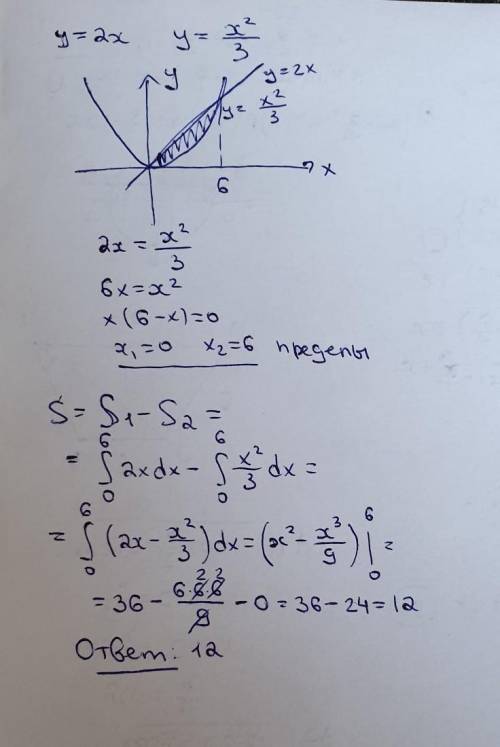 y=2x y= x²/3
y
y=2x
y= x²/3
x
6
2x = x²/3
6x=x²
x(6-x)=0
x₁=0 x₂=6 пределы
S= S₁-S₂ =
= ∫₀⁶ 2xdx - ∫₀⁶ x²/3 dx =
= ∫₀⁶ (2x - x²/3)dx = (x² - x³/9) |₀⁶ =
= 36 - 6·6·6/9 - 0 = 36-24=12
2 2
Ответ: 12